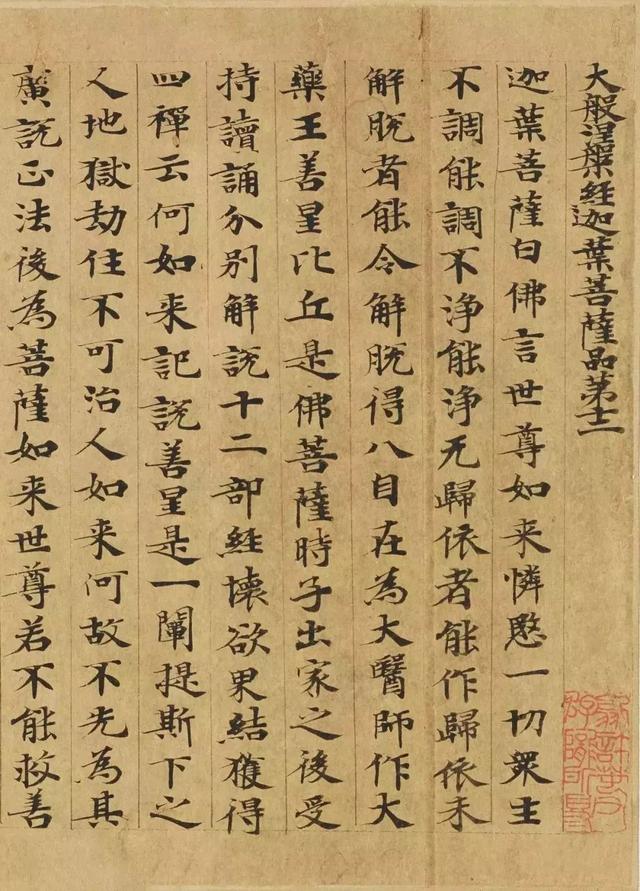 大般涅槃経迦葉菩薩品第十二
迦葉菩薩白佛言世尊如来憐愍一切衆生
不調能調不浄能浄无歸依者能作歸依未
解脱者能令解脱得八自在為大醫師作大
藥王善星比丘是佛菩薩時子出家之後受
持讀誦分别解說十二部経壊欲果結獲得
四禪云何如来記說善星是一闡提斯下之
人地獄劫住不可治人如来何故不先為其
廣說正法後為菩薩如来世尊若不能救善